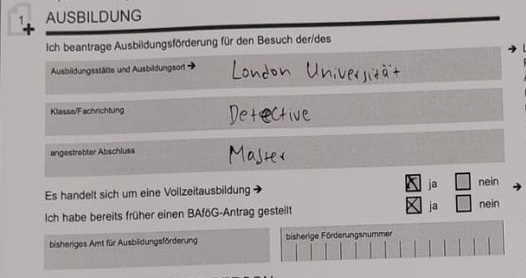 1 AUSBILDUNG
Ich beantrage Ausbildungsförderung für den Besuch der/des
Ausbildungsstätte und Ausbildungsort → London Universität
Klasse/Fachrichtung Detective
angestrebter Abschluss Master
Es handelt sich um eine Vollzeitausbildung → ☒ ja ☐ nein
Ich habe bereits früher einen BAföG-Antrag gestellt ☒ ja ☐ nein
bisheriges Amt für Ausbildungsförderung bisherige Förderungsnummer